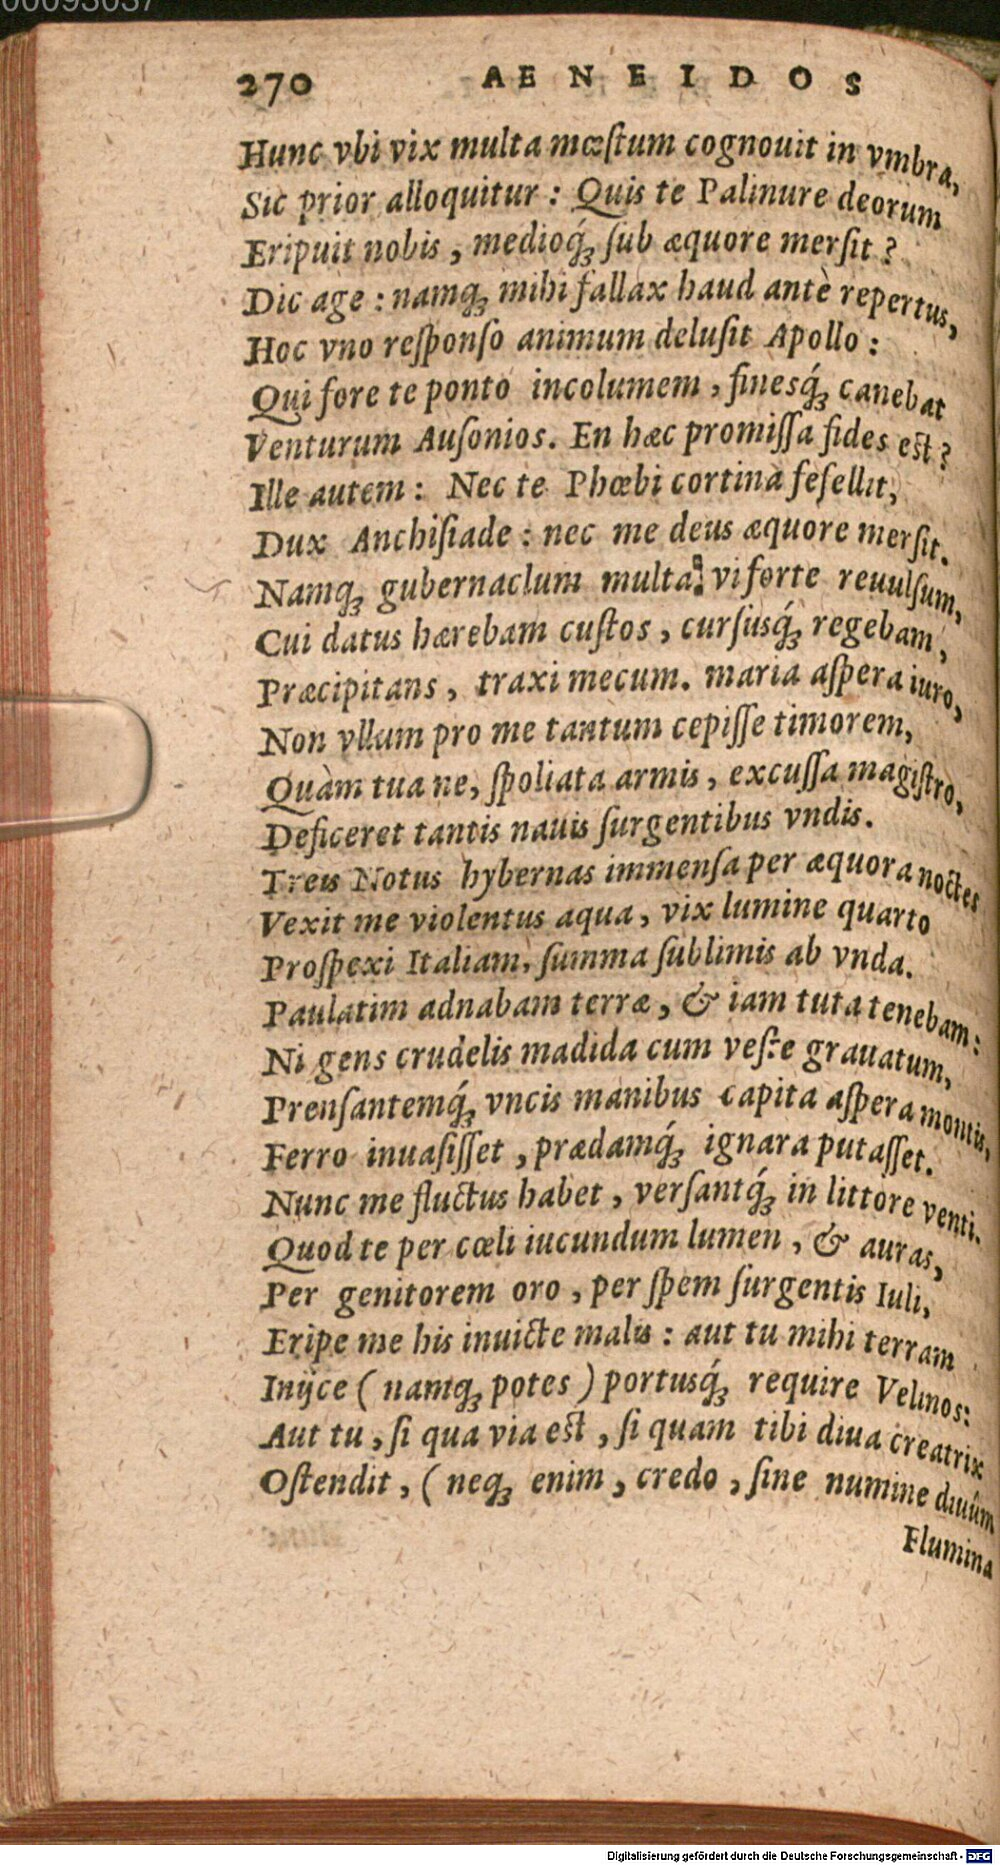 270 AENEIDOS
Hunc vbi vix multa mœſtum cognouit in vmbra,
Sic prior alloquitur : Quis te Palinure deorum
Eripuit nobis, medioq́ꝫ ſub æquore merſit ?
Dic age : namqꝫ mihi fallax haud antè repertus,
Hoc vno reſponſo animum deluſit Apollo :
Qui fore te ponto incolumem, fineſq́ꝫ canebat
Venturum Auſonios. En hæc promiſſa fides est ?
Ille autem : Nec te Phœbi cortina fefellit,
Dux Anchiſiade : nec me deus æquore merſit.
Namqꝫ gubernaclum multa vi forte reuulſum,
Cui datus hærebam cuſtos, curſuſq́ꝫ regebam,
Præcipitans, traxi mecum. maria aſpera iuro,
Non vllum pro me tantum cepiſſe timorem,
Quàm tua ne, ſpoliata armis, excuſſa magiſtro,
Deficeret tantis nauis ſurgentibus vndis.
Treis Notus hybernas immenſa per æquora noctes
Vexit me violentus aqua, vix lumine quarto
Proſpexi Italiam, ſumma ſublimis ab vnda.
Paulatim adnabam terræ, & iam tuta tenebam :
Ni gens crudelis madida cum veſte grauatum,
Prenſantemq́ꝫ vncis manibus capita aſpera montis,
Ferro inuaſiſſet, prædamq́ꝫ ignara putaſſet.
Nunc me fluctus habet, verſantq́ꝫ in littore venti.
Quod te per cœli iucundum lumen, & auras,
Per genitorem oro, per ſpem ſurgentis Iuli,
Eripe me his inuicte malis : aut tu mihi terram
Inijce (namqꝫ potes) portuſq́ꝫ require Velinos:
Aut tu, ſi qua via est, ſi quam tibi diua creatrix
Oſtendit, (neqꝫ enim, credo, ſine numine diuûm
Flumina
Digitalisierung gefördert durch die Deutsche Forschungsgemeinschaft - DFG